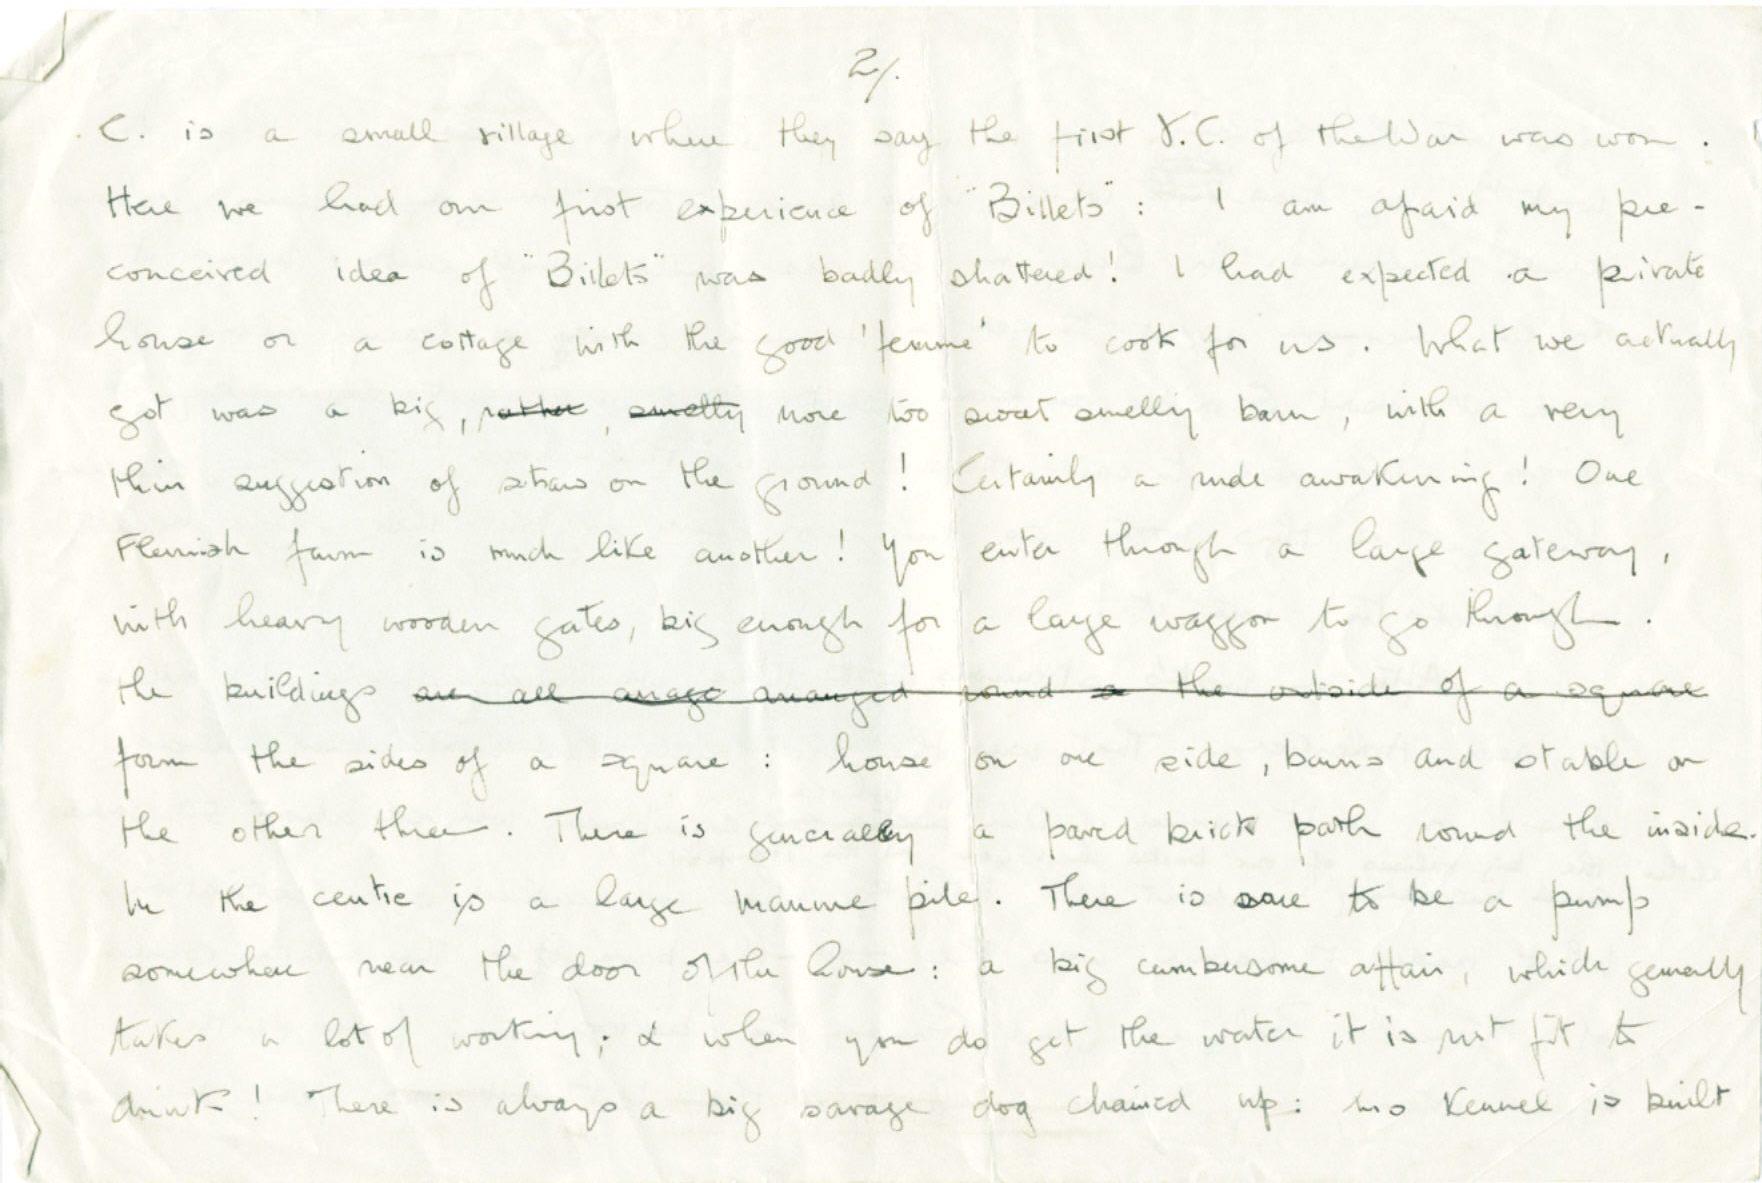 2/.
C. is a small village where they say the first V.C. of the War was won.
Here we had our first experience of "Billets": I am afraid my pre-
conceived idea of "Billets" was badly shattered! I had expected a private
house or a cottage with the good 'femme' to cook for us. What we actually
got was a big, rather, smelly none too sweet smelling barn, with a very
thin suggestion of straw on the ground! Certainly a rude awakening! One
Flemish farm is much like another! You enter through a large gateway,
with heavy wooden gates, big enough for a large waggon to go through.
The buildings are all arrage arranged round a the outside of a square
form the sides of a square: house on one side, barns and stable on
the other three. There is generally a paved brick path round the inside.
In the centre is a large manure pile. There is sure to be a pump
somewhere near the door of the house: a big cumbersome affair, which generally
takes a lot of working; & when you do get the water it is not fit to
drink! There is always a big savage dog chained up: his kennel is built